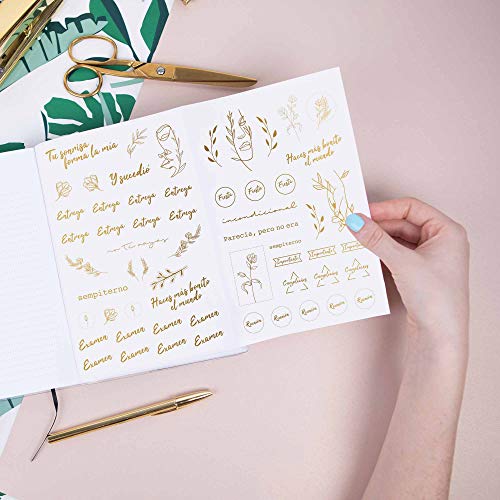 Tu sonrisa
forma la mía
Y sucedió
Entrega Entrega Entrega Entrega
Entrega Entrega Entrega Entrega
no tengas
sempiterno
Haces más bonito
el mundo
Examen Examen Examen Examen
Examen Examen Examen Examen
Haces más bonito
el mundo
Fiesta Fiesta Fiesta
incondicional
Parecía, pero no era
sempiterno
Importante Importante Importante
Cumpleaños Cumpleaños Cumpleaños
Reunión Reunión Reunión Reunión Reunión